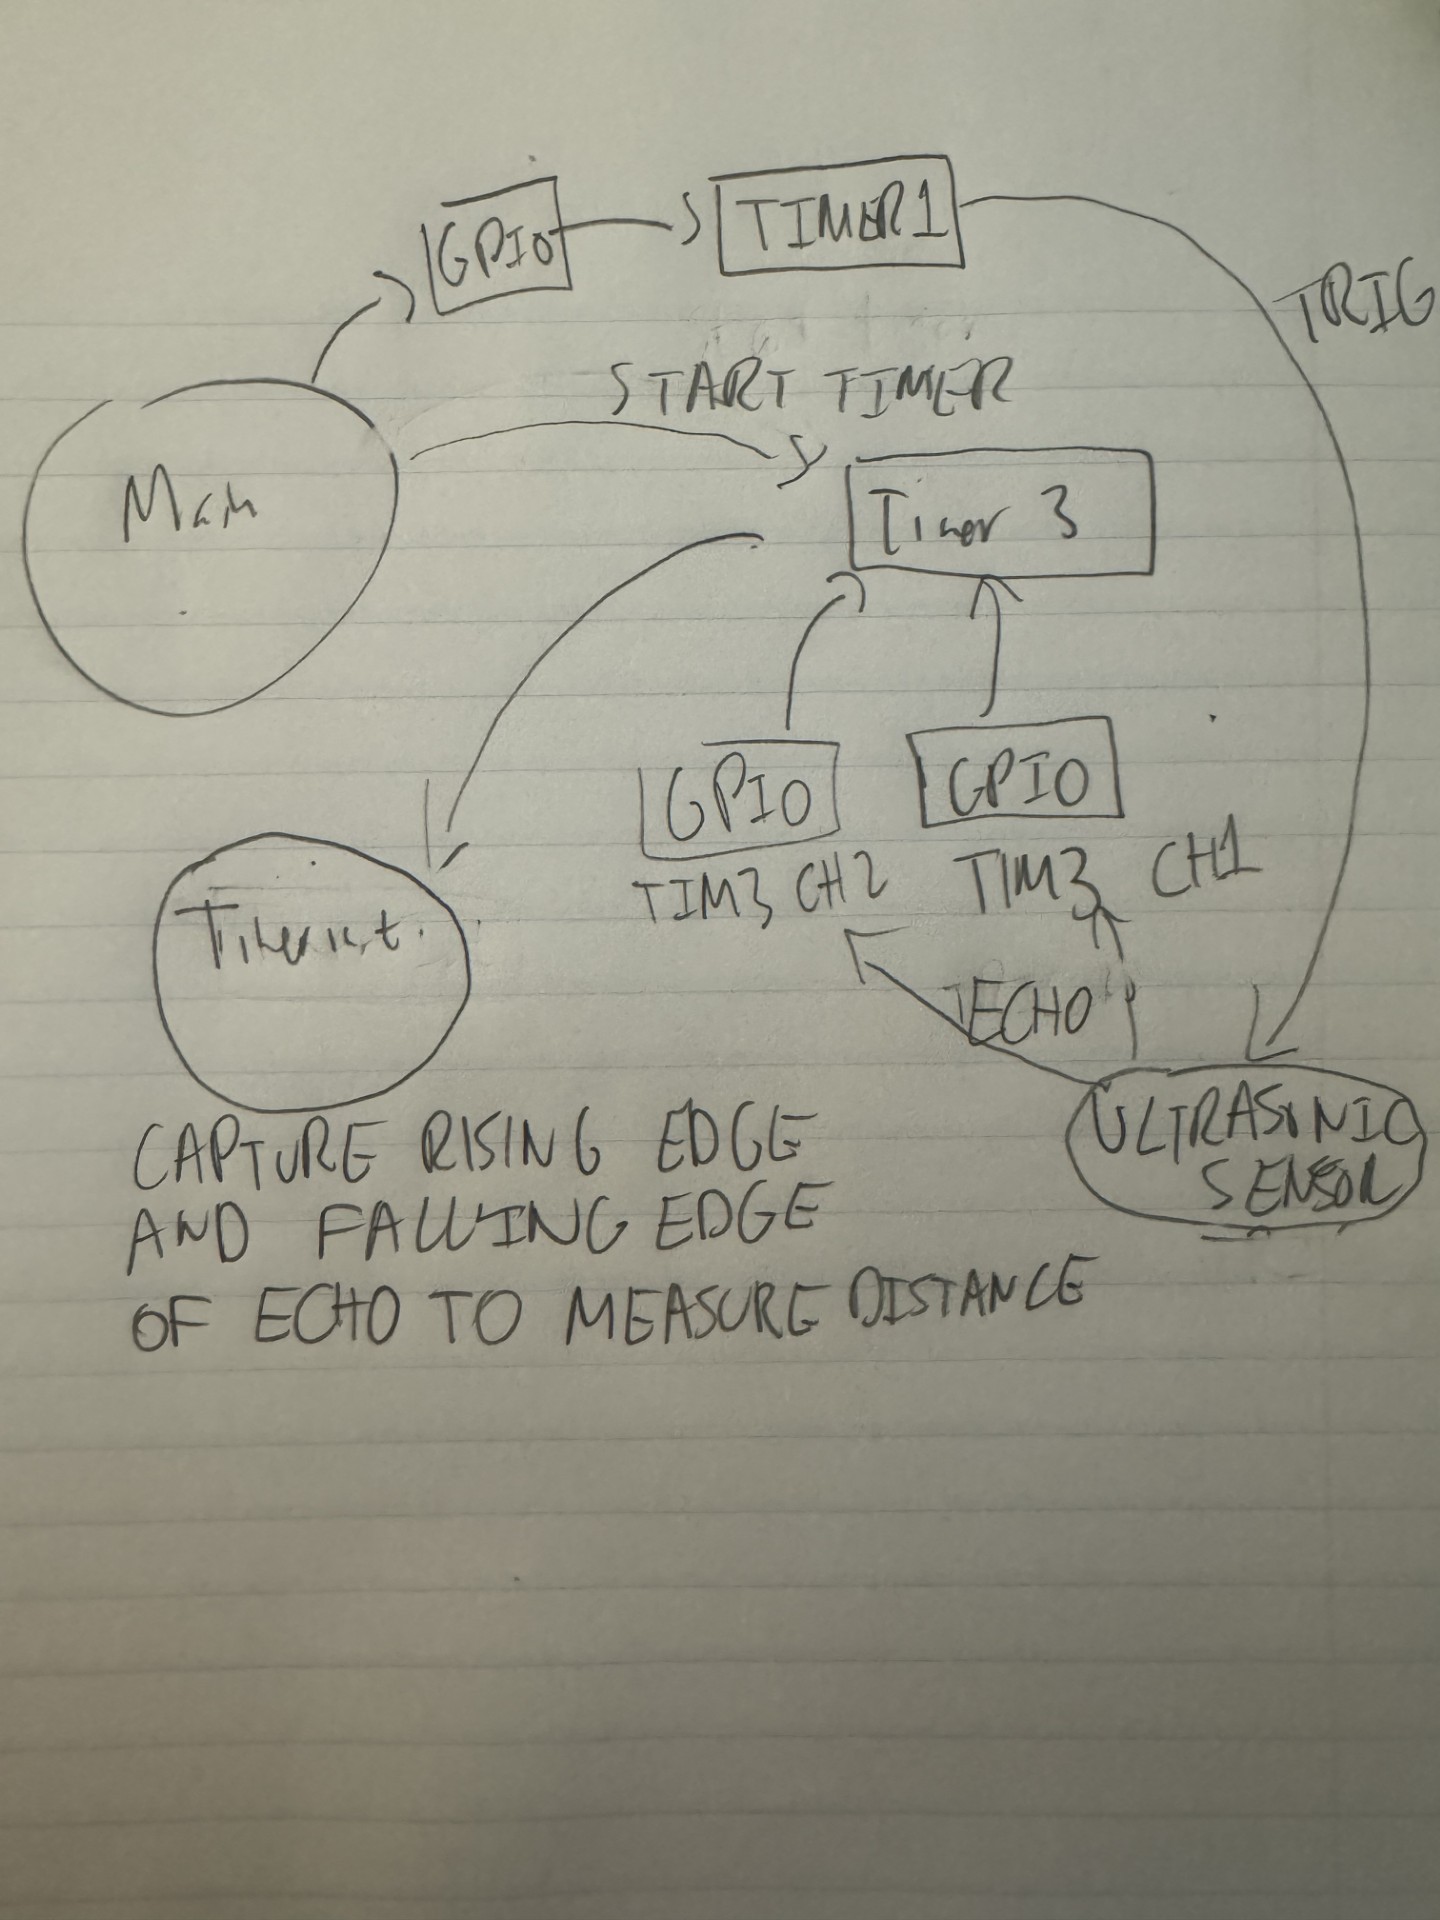 GPIO
TIMER1
TRIG
START TIMER
Main
Timer 3
GPIO
GPIO
TIM3 CH2
TIM3 CH1
Timer int.
ECHO
ULTRASONIC
SENSOR
CAPTURE RISING EDGE
AND FALLING EDGE
OF ECHO TO MEASURE DISTANCE